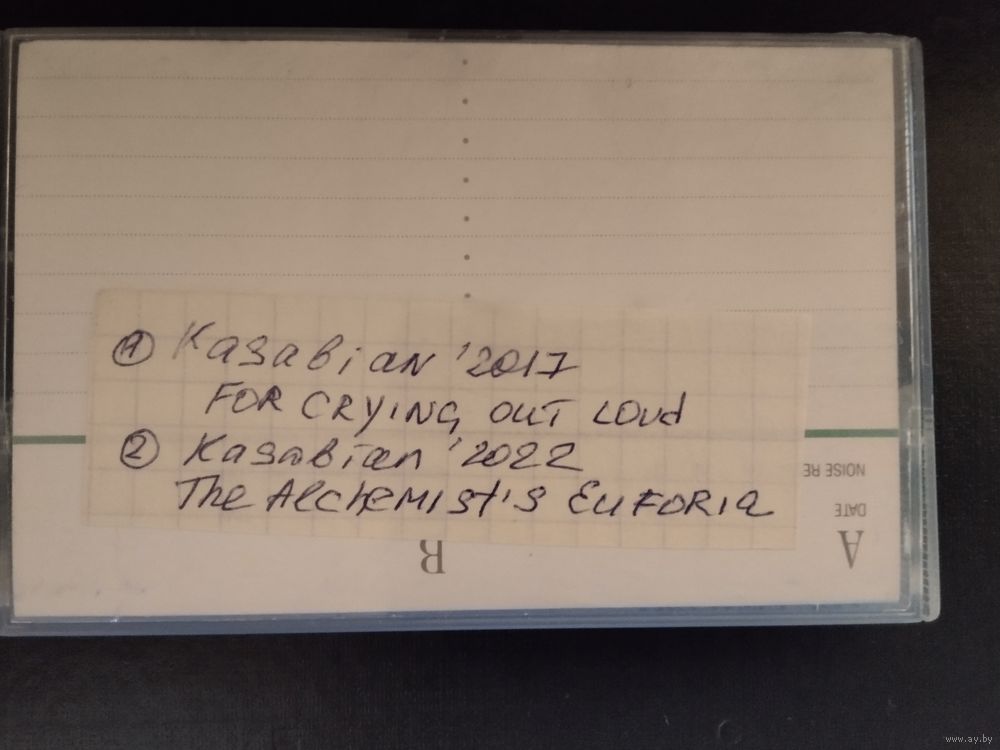 ① Kasabian '2017
FOR CRYING OUT LOUD
② Kasabian '2022
The Alchemist's Euforia
NOISE RE
DATE
A
B
www.ay.by